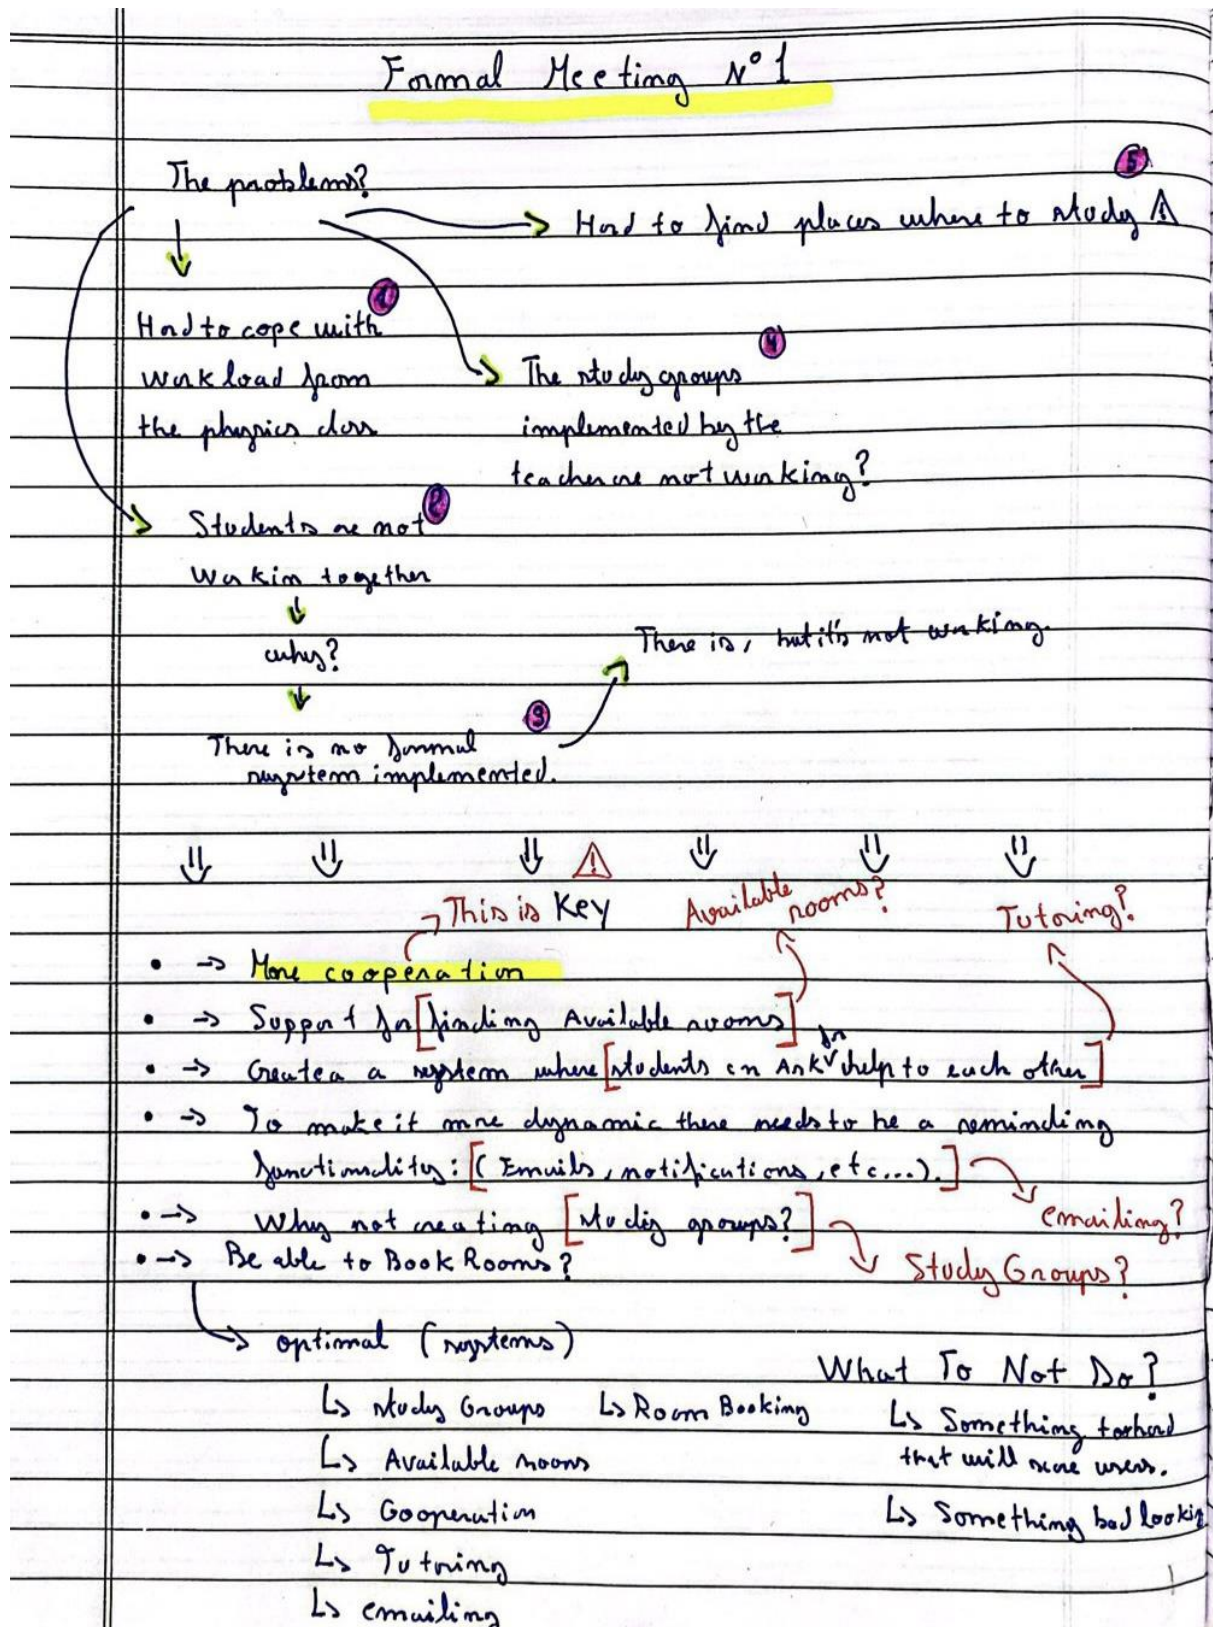 Formal Meeting N° 1
The problems?
5
Hard to find places where to study
1
Hard to cope with
work load from
the physics class
4
The study groups
implemented by the
teacher are not working?
2
Students are not
Workin together
why?
3
There is no formal
system implemented.
There is, but it's not working.
This is Key
Available rooms?
Tutoring?
More cooperation
Support for [finding Available rooms]
Createa a system where [students can Ask for help to each other]
To make it more dynamic there needs to be a reminding
functionality: [(Emails, notifications, etc...).]
emailing?
Why not creating [study groups?]
Study Groups?
Be able to Book Rooms?
optimal (systems)
What To Not Do?
study Groups
Room Booking
Something too hard
that will scare users.
Available rooms
Cooperation
Something bad lookin
Tutoring
emailing